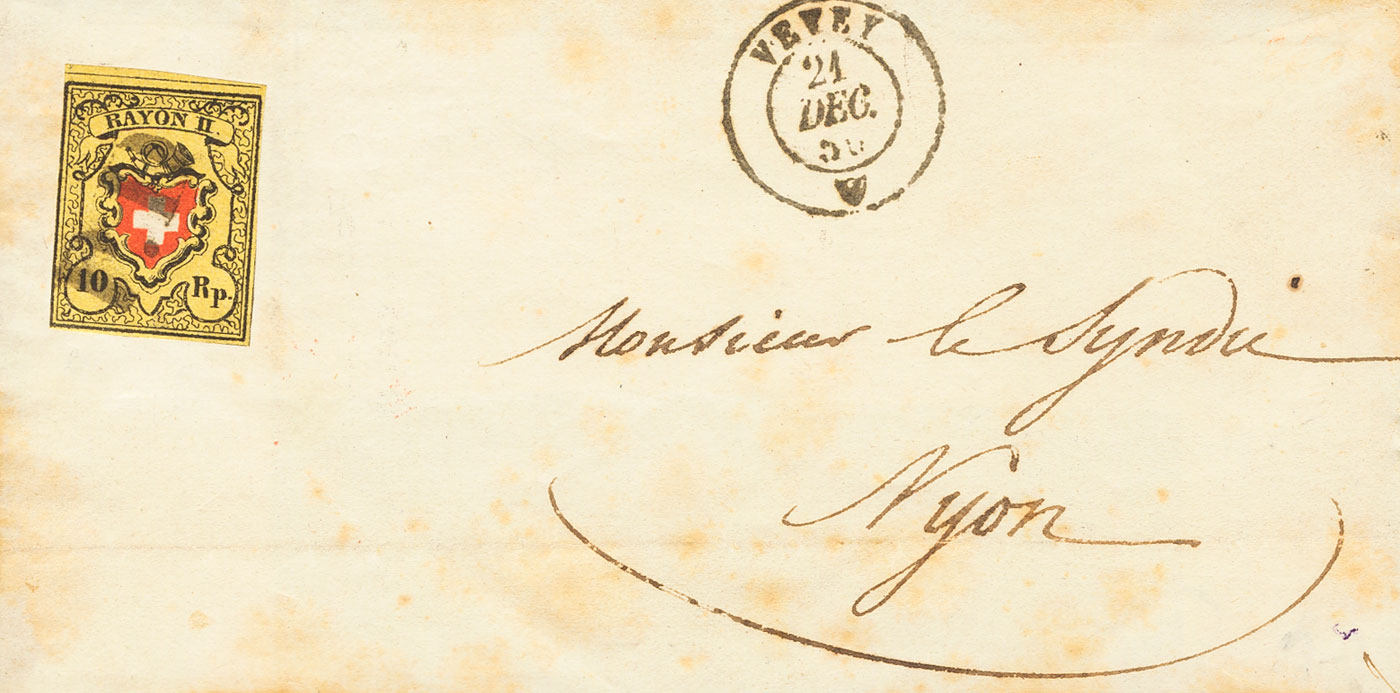 RAYON II.
10 Rp.
VEVEY
21
DEC.
50
Monsieur le Syndic
Nyon